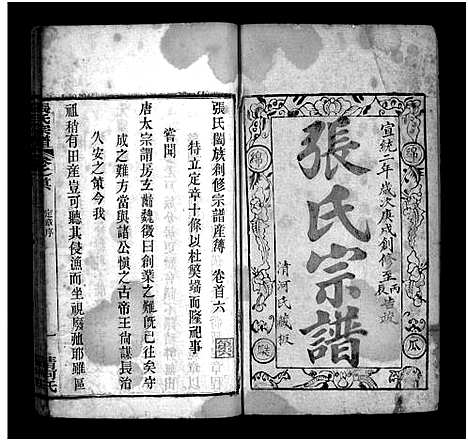 宣統二年歲次庚戌創修至丙
張氏宗譜
清河氏藏板
綿
瓜
張氏闔族創修宗譜產簿 卷首六
特立定章十條以杜獘端而隆祀事
嘗聞
唐太宗謂房玄齡魏徵曰創業之難既已往矣守
成之難方當與諸公慎之古帝王尙謀長治
久安之策今我
祖稍有田產豈可聽其侵漁而坐視廢弛耶雖區
張氏宗譜
定章序
一
清河氏